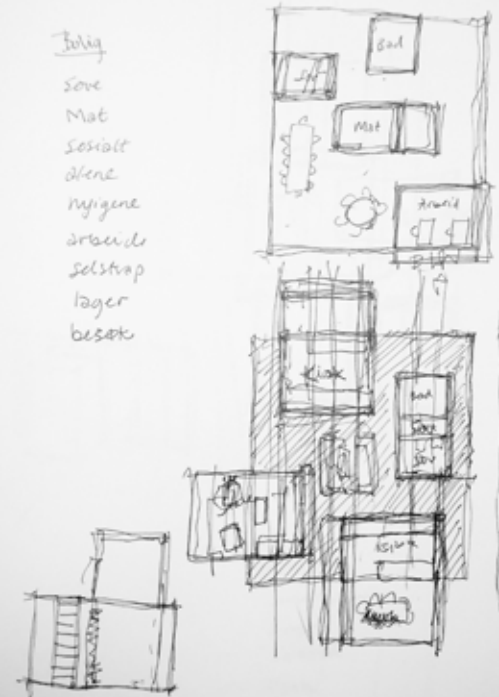 Bolig
Sove
Mat
Sosialt
alene
hygiene
arbeide
selskap
lager
besøk
Bad
Sov
Mat
Arbeid
Bad
Sove
Sov